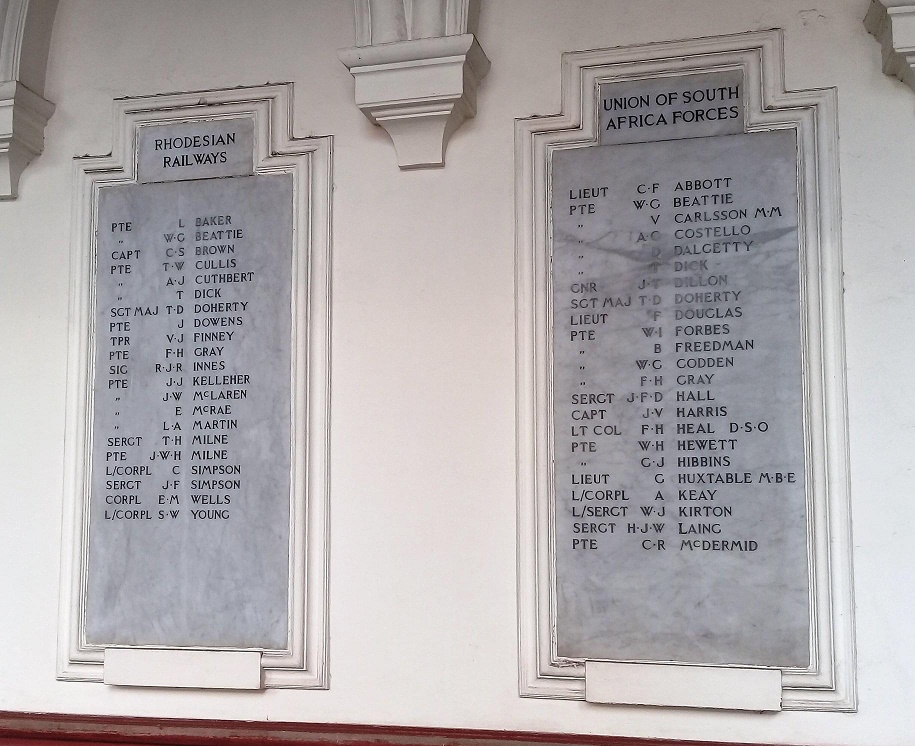 RHODESIAN
RAILWAYS
PTE L BAKER
" W·G BEATTIE
CAPT C·S BROWN
PTE T·W CULLIS
" A·J CUTHBERT
" T DICK
SGT MAJ T·D DOHERTY
PTE J DOWENS
TPR V·J FINNEY
PTE F·H GRAY
SIG R·J·R INNES
PTE J·J KELLEHER
" J·W McLAREN
" E McRAE
" L·A MARTIN
SERGT T·H MILNE
PTE J·W·H MILNE
L/CORPL C SIMPSON
SERGT J·F SIMPSON
CORPL E·M WELLS
L/CORPL S·W YOUNG
UNION OF SOUTH
AFRICA FORCES
LIEUT C·F ABBOTT
PTE W·G BEATTIE
" V CARLSSON M·M
" A·C COSTELLO
" D DALGETTY
" T DICK
GNR J·T DILLON
SGT MAJ T·D DOHERTY
LIEUT F DOUGLAS
PTE W·I FORBES
" B FREEDMAN
" W·G GODDEN
" F·H GRAY
SERGT J·F·D HALL
CAPT J·V HARRIS
LT COL F·H HEAL D·S·O
PTE W·H HEWETT
" G·J HIBBINS
LIEUT G HUXTABLE M·B·E
L/CORPL A KEAY
L/SERGT W·J KIRTON
SERGT H·J·W LAING
PTE C·R McDERMID